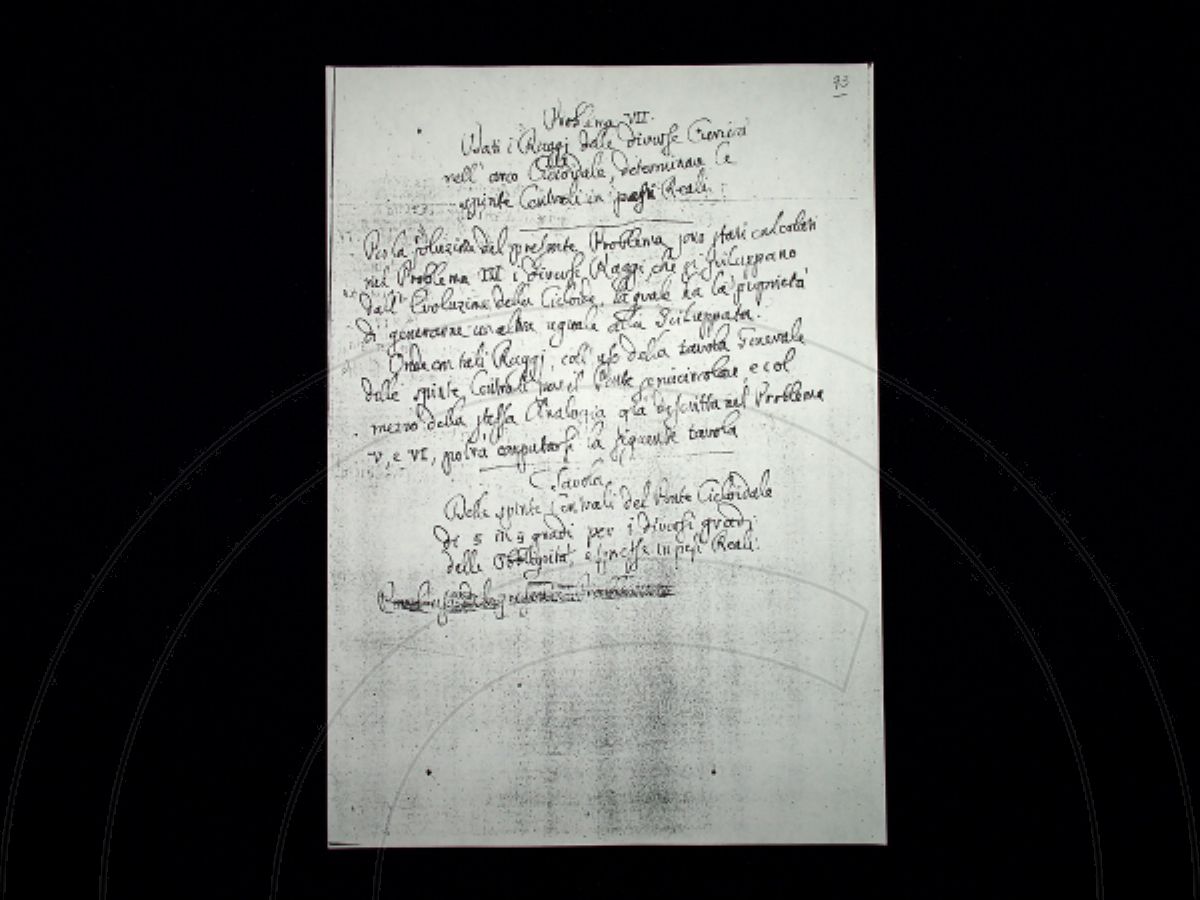 73
Problema VII.
Dati i Raggi dele diverse
nell' arco Cicloidale, determinare le
spinte Centrali in pesi Reali.
Per la soluzione del presente Problema sono stati calcolati
nel Problema III i diversi Raggi, che si sviluppano
dall' Evoluzione della Cicloide, la quale ha la proprietà
di generarne un'altra uguale alla Sviluppata.
Onde con tali Raggi, coll' uso della tavola Generale
delle spinte Centrali per il Ponte semicircolare, e col
mezzo della stessa Analogia già descritta nel Problema
V, e VI, potrà computarsi la seguente tavola
Tavola
Delle spinte Centrali del Ponte Cicloidale
di 5 in 5 gradi per i diversi gradi
delle Obbliquità, espresse in pesi Reali.